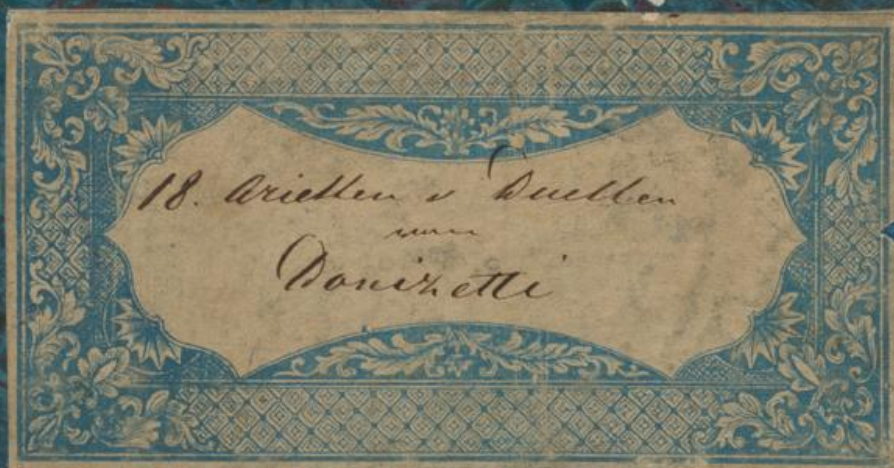 18. Arietten u Duetten
von
Donizetti